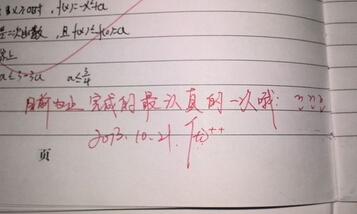 当x≥0时,f(x)=-x²+a
是二次函数,且f(x)≤f(0)=a
综上
a≤3-3a a≤3/4
目前为止 完成的最认真的一次哦:
2013.10.21.
页